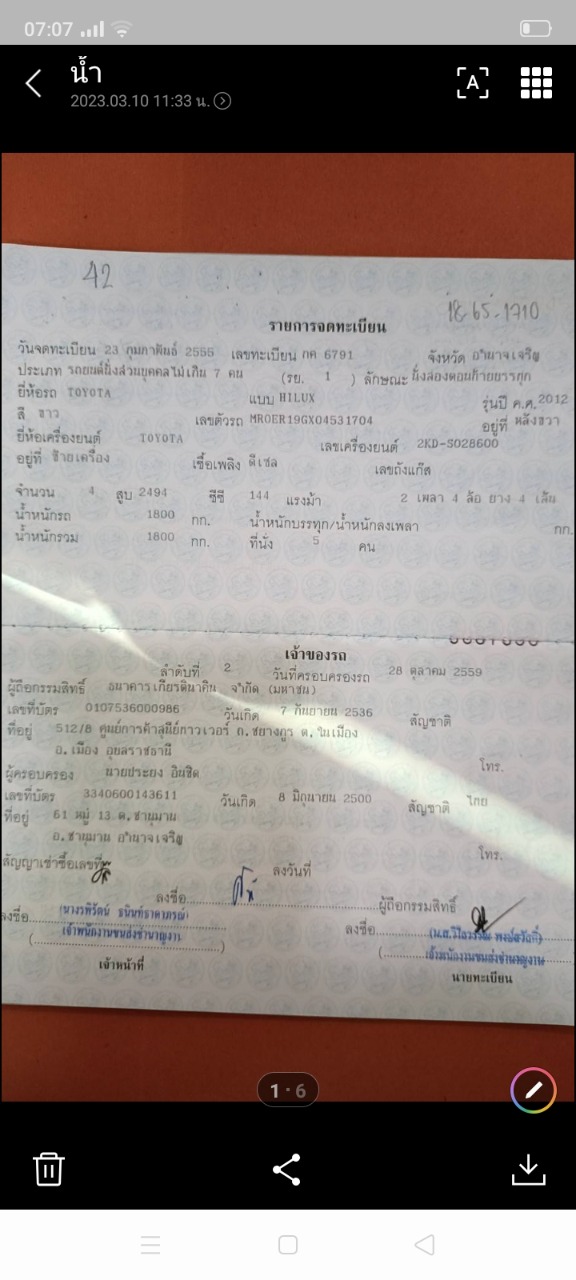 07:07
น้ำ
2023.03.10 11:33 น.
A
42
18-65-1710
รายการจดทะเบียน
วันจดทะเบียน 23 กุมภาพันธ์ 2555 เลขทะเบียน กค 6791 จังหวัด อำนาจเจริญ
ประเภท รถยนต์นั่งส่วนบุคคลไม่เกิน 7 คน (รย. 1 ) ลักษณะ นั่งสองตอนท้ายบรรทุก
ยี่ห้อรถ TOYOTA แบบ HILUX รุ่นปี ค.ศ. 2012
สี ขาว เลขตัวรถ MROER19GX04531704 อยู่ที่ หลังขวา
ยี่ห้อเครื่องยนต์ TOYOTA เลขเครื่องยนต์ 2KD-S028600
อยู่ที่ ซ้ายเครื่อง เชื้อเพลิง ดีเซล เลขถังแก๊ส
จำนวน 4 สูบ 2494 ซีซี 144 แรงม้า 2 เพลา 4 ล้อ ยาง 4 เส้น
น้ำหนักรถ 1800 กก. น้ำหนักบรรทุก/น้ำหนักลงเพลา กก.
น้ำหนักรวม 1800 กก. ที่นั่ง 5 คน
เจ้าของรถ
ลำดับที่ 2 วันที่ครอบครองรถ 28 ตุลาคม 2559
ผู้ถือกรรมสิทธิ์ ธนาคารเกียรตินาคิน จำกัด (มหาชน)
เลขที่บัตร 0107536000986 วันเกิด 7 กันยายน 2536 สัญชาติ
ที่อยู่ 512/8 ศูนย์การค้าสุนีย์ทาวเวอร์ ถ.ชยางกูร ต.ในเมือง
อ.เมือง อุบลราชธานี โทร.
ผู้ครอบครอง นายประยง อินชิด
เลขที่บัตร 3340600143611 วันเกิด 8 มิถุนายน 2500 สัญชาติ ไทย
ที่อยู่ 61 หมู่ 13 ต.ชานุมาน
อ.ชานุมาน อำนาจเจริญ โทร.
สัญญาเช่าซื้อเลขที่ ลงวันที่
ลงชื่อ ผู้ถือกรรมสิทธิ์
ลงชื่อ ลงชื่อ
เจ้าพนักงานขนส่งชำนาญงาน เจ้าพนักงานขนส่งชำนาญงาน
เจ้าหน้าที่ นายทะเบียน
1 · 6